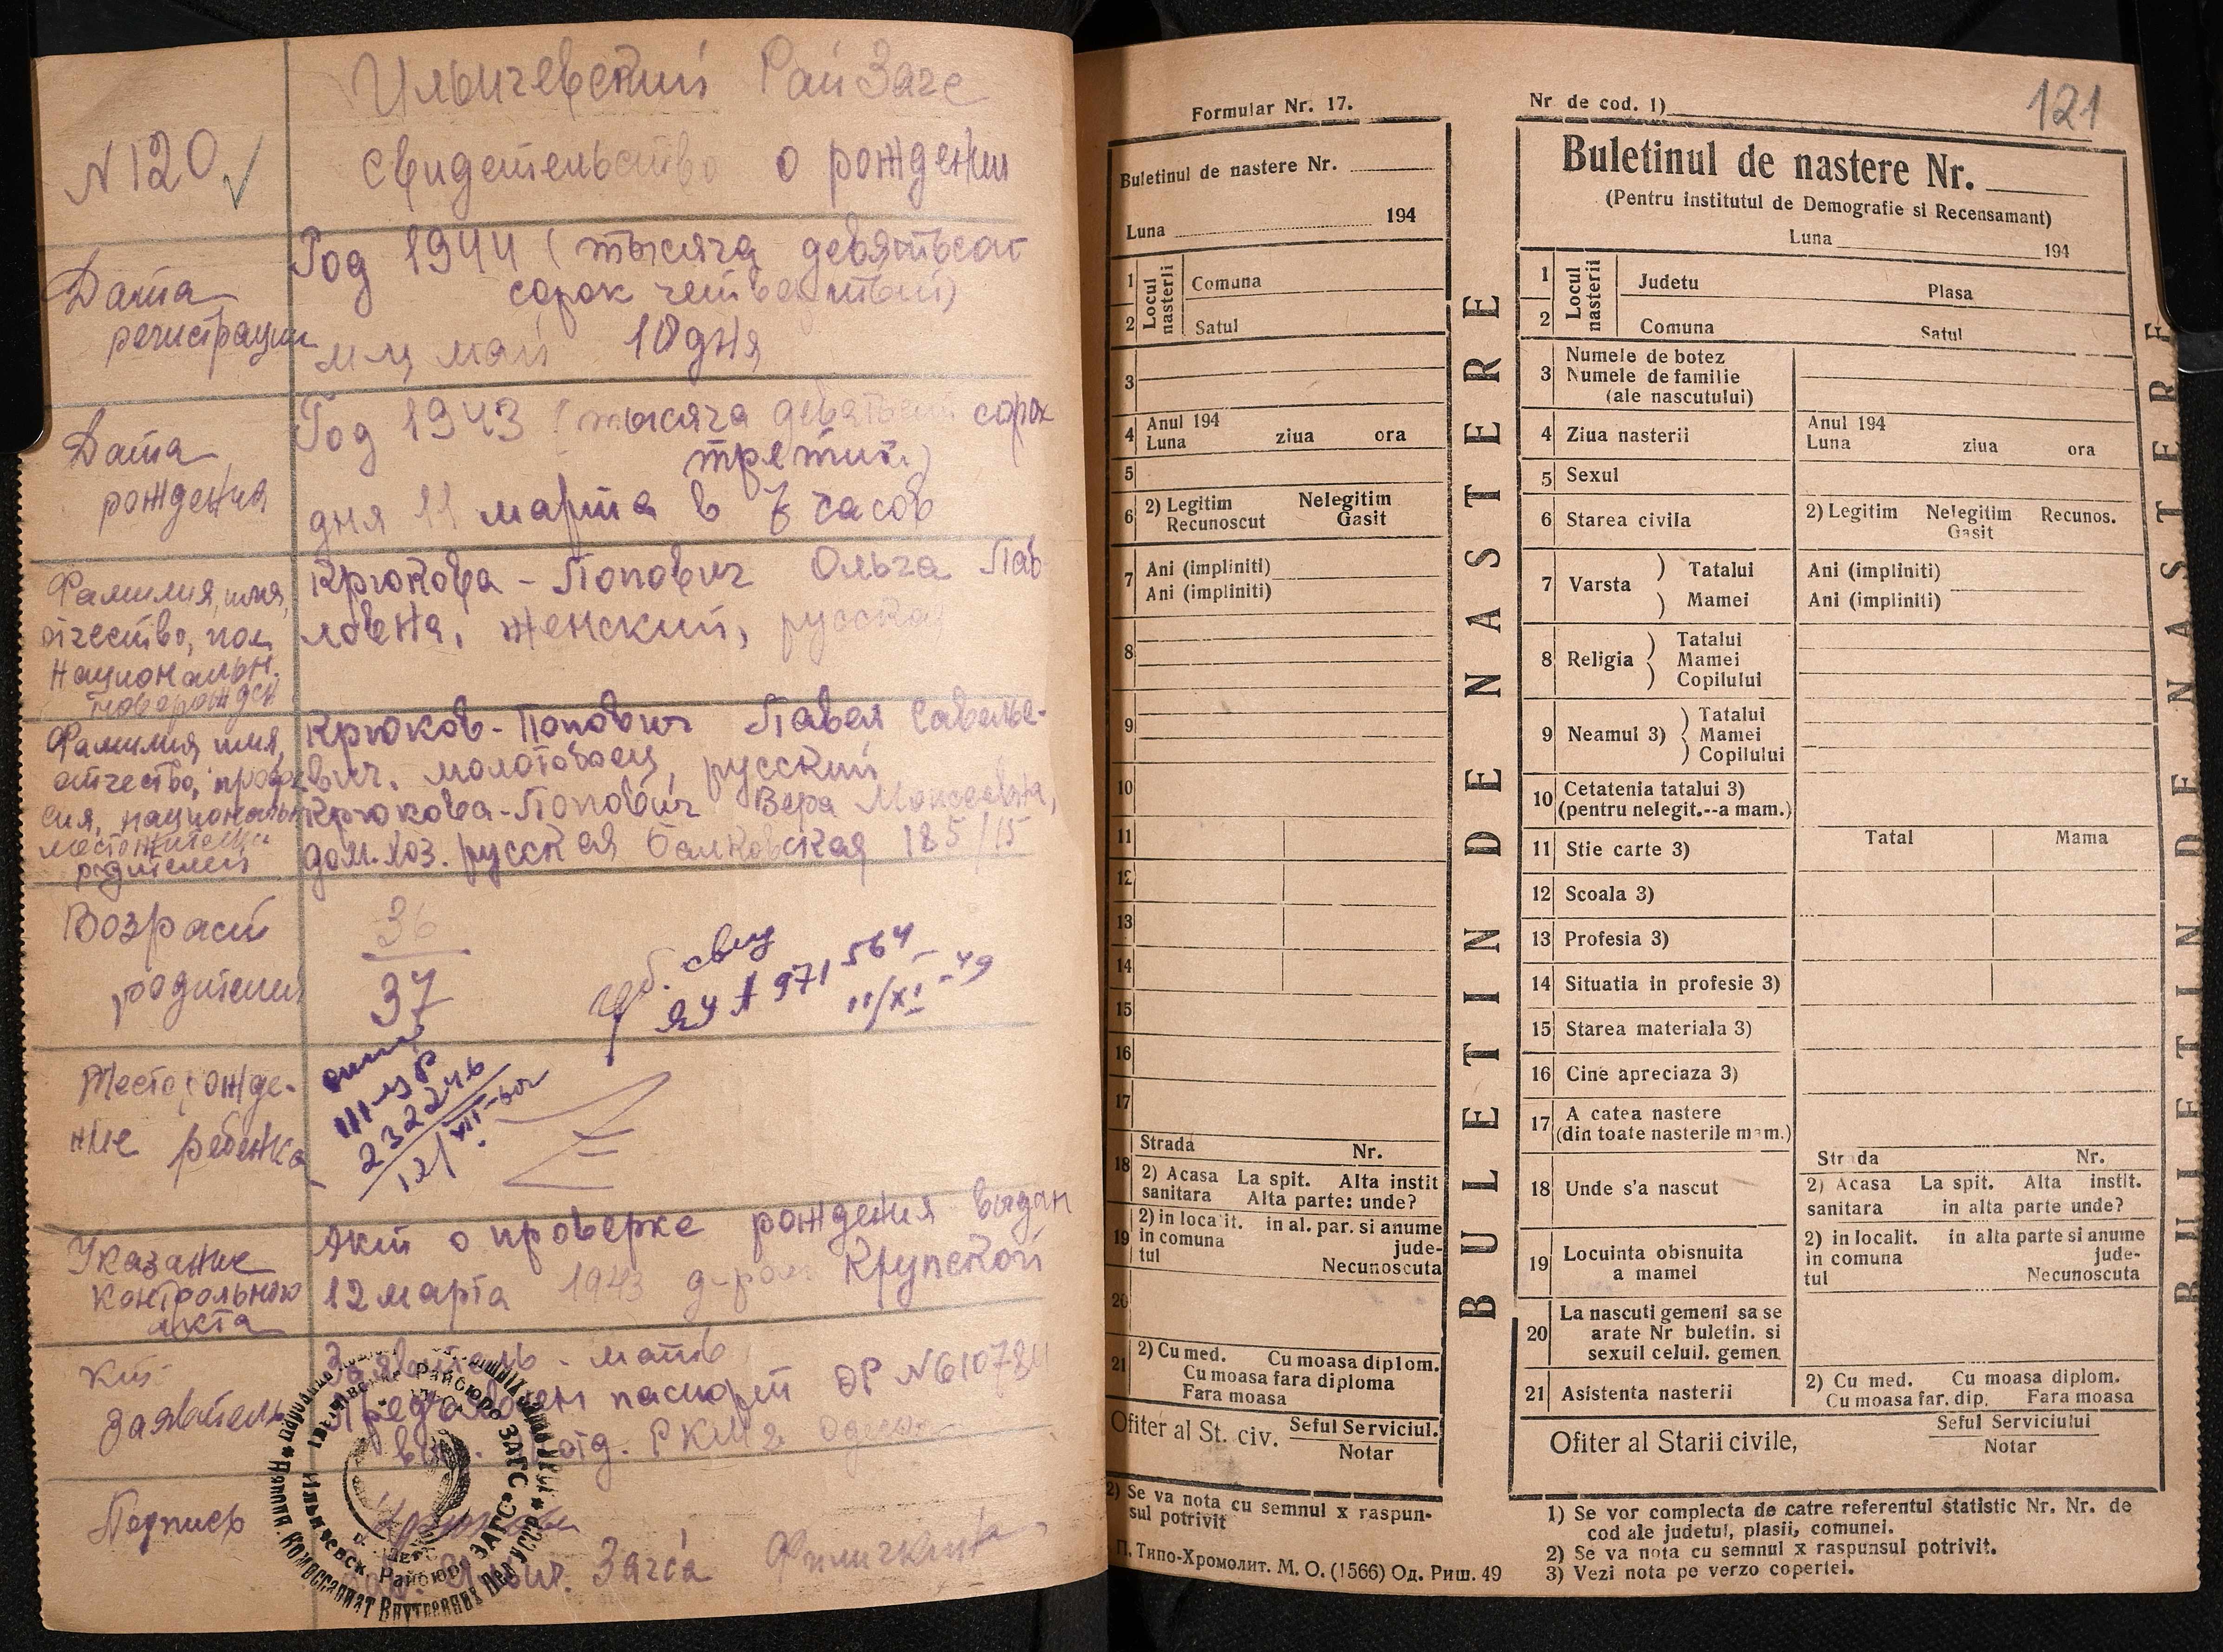 Ильичевский РайЗагс
N 120 ✓
Свидетельство о рождении
Дата регистрации
Год 1944 (тысяча девятьсот
сорок четвертый)
м-ц май 10 дня
Дата рождения
Год 1943 (тысяча девятьсот сорок
третий)
дня 11 марта в 7 часов
Фамилия, имя,
отчество, пол,
национальн.
новорожден
Крюкова-Попович Ольга Пав
ловна, женский, русская
Фамилия, имя,
отчество, профес
сия, национальн
местожительс
родителей
Крюков-Попович Павел Савелье-
вич. молотобоец, русский
Крюкова-Попович Вера Моисеевна,
дом.хоз. русская Балковская 185/15
Возраст
родителей
36
37
свид
971564
11/XI-49
232246
12/VII-
Место рожде-
ние ребенка
Указание
контрольного
акта
Акт о проверке рождения выдан
12 марта 1943 д-ром Крупской
Кто
заявитель
Заявитель - мать
Предъявлен паспорт ОР N 610784
отд. РКМ г Одессы
Подпись
Загса
РайБюро ЗАГС
Комиссариат Внутренних Дел УССР
121
Formular Nr. 17.
Buletinul de nastere Nr.
Luna 194
1 Locul nasterii Comuna
2 Satul
3
4 Anul 194
Luna ziua ora
5
6 2) Legitim Nelegitim
Recunoscut Gasit
7 Ani (impliniti)
Ani (impliniti)
8
9
10
11
12
13
14
15
16
17
Strada Nr.
18 2) Acasa La spit. Alta instit
sanitara Alta parte: unde?
19 2) in localit. in al. par. si anume
in comuna jude-
tul Necunoscuta
20
21 2) Cu med. Cu moasa diplom.
Cu moasa fara diploma
Fara moasa
Ofiter al St. civ. Seful Serviciul.
Notar
2) Se va nota cu semnul x raspun-
sul potrivit
П. Типо-Хромолит. М. О. (1566) Од. Риш. 49
BULETIN DE NASTERE
Nr de cod. 1)
Buletinul de nastere Nr.
(Pentru institutul de Demografie si Recensamant)
Luna 194
1 Locul nasterii Judetu Plasa
2 Comuna Satul
3 Numele de botez
Numele de familie
(ale nascutului)
4 Ziua nasterii Anul 194
Luna ziua ora
5 Sexul
6 Starea civila 2) Legitim Nelegitim Recunos.
Gasit
7 Varsta Tatalui Ani (impliniti)
Mamei Ani (impliniti)
8 Religia Tatalui
Mamei
Copilului
9 Neamul 3) Tatalui
Mamei
Copilului
10 Cetatenia tatalui 3)
(pentru nelegit.--a mam.)
11 Stie carte 3) Tatal Mama
12 Scoala 3)
13 Profesia 3)
14 Situatia in profesie 3)
15 Starea materiala 3)
16 Cine apreciaza 3)
17 A catea nastere
(din toate nasterile mam.)
Strada Nr.
18 Unde s'a nascut 2) Acasa La spit. Alta instit.
sanitara in alta parte unde?
19 Locuinta obisnuita
a mamei
2) in localit. in alta parte si anume
in comuna jude-
tul Necunoscuta
20 La nascuti gemeni sa se
arate Nr buletin. si
sexuil celuil. gemen
21 Asistenta nasterii 2) Cu med. Cu moasa diplom.
Cu moasa far. dip. Fara moasa
Ofiter al Starii civile, Seful Serviciului
Notar
1) Se vor complecta de catre referentul statistic Nr. Nr. de
cod ale judetul, plasii, comunei.
2) Se va nota cu semnul x raspunsul potrivit.
3) Vezi nota pe verzo copertei.
BULETIN DE NASTERE